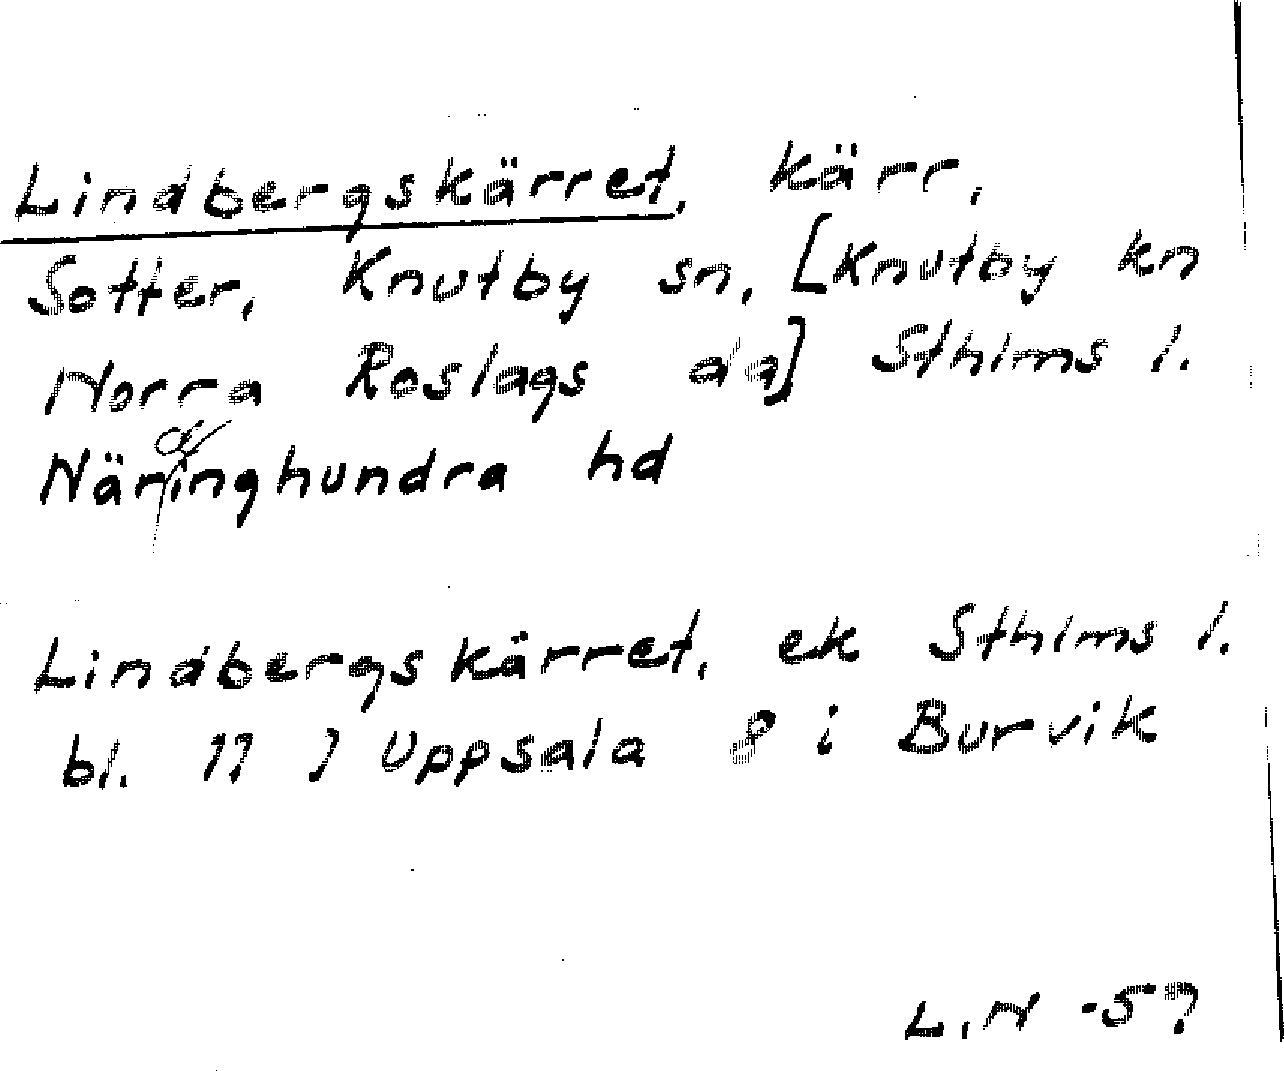 Lindbergskärret, kärr.
Sotter, Knutby sn, [Knutby kn
Norra Roslags dg] Sthlms l.
Näringhundra hd
Lindbergskärret, ek Sthlms l.
bl. 77 7 Uppsala 8 i Burvik
L.N -57